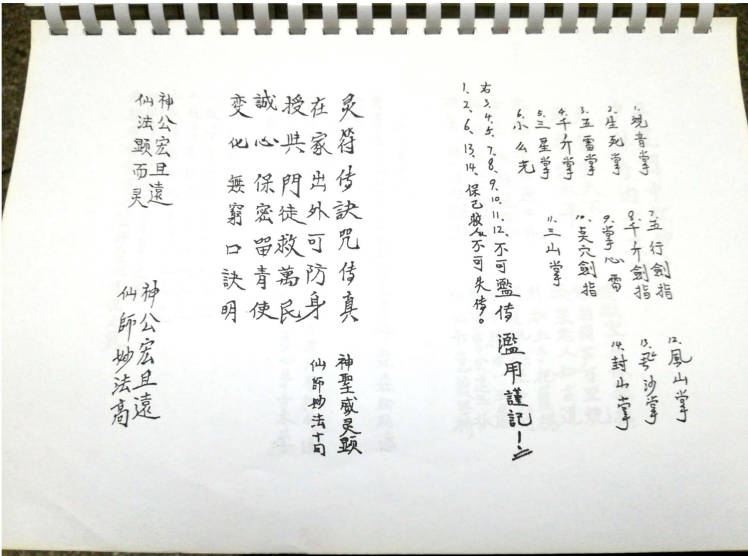 1.覌音掌
2.生死掌
3.五雷掌
4.千斤掌
5.三星掌
6.小
7.五行劍指
8.千斤劍指
9.掌心雷
10.奌穴劍指
11.三山掌
12.風山掌
13.飛沙掌
14.封山掌
右3.4.5.7.8.9.10.11.12.不可濫传 濫用謹記！
1.2.6.13.14.保己救人不可失传。
灵符传訣咒传真
在家出外可防身
授與門徒救萬民
誠心保密留青使
变化無窮口訣明
神聖威灵顕
仙師妙法十句
神公宏且遠
仙法顕而灵
神公宏且遠
仙師妙法高